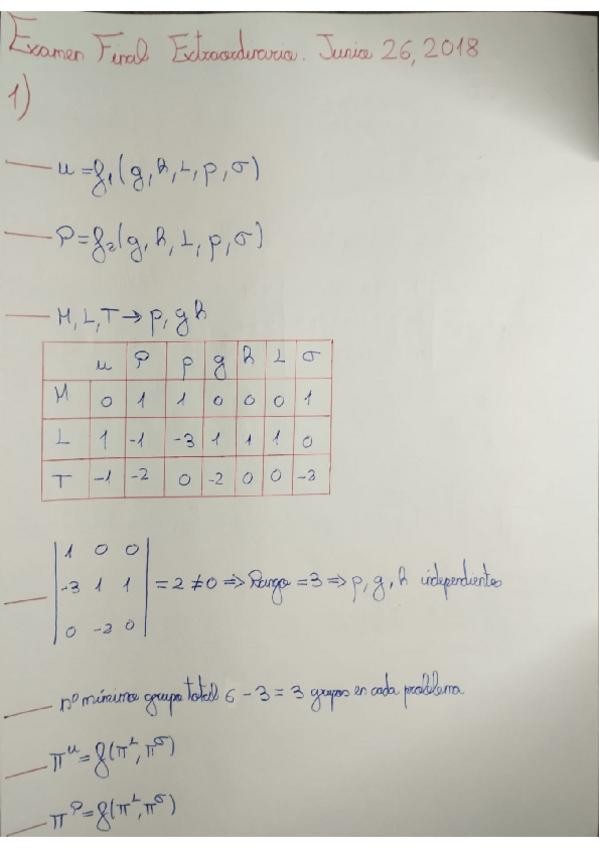 Examen Final Extraordinario. Junio 26, 2018
1)
u = f₁(g, h, L, ρ, σ)
P = f₂(g, h, L, ρ, σ)
M, L, T → ρ, g h
u P ρ g h L σ
M 0 1 1 0 0 0 1
L 1 -1 -3 1 1 1 0
T -1 -2 0 -2 0 0 -3
|1 0 0|
|-3 1 1| = 2 ≠ 0 ⇒ Rango = 3 ⇒ ρ, g, h independientes
|0 -2 0|
nº mínimo grupo total 6 - 3 = 3 grupos en cada problema
π^u = f(π^L, π^σ)
π^P = f(π^L, π^σ)